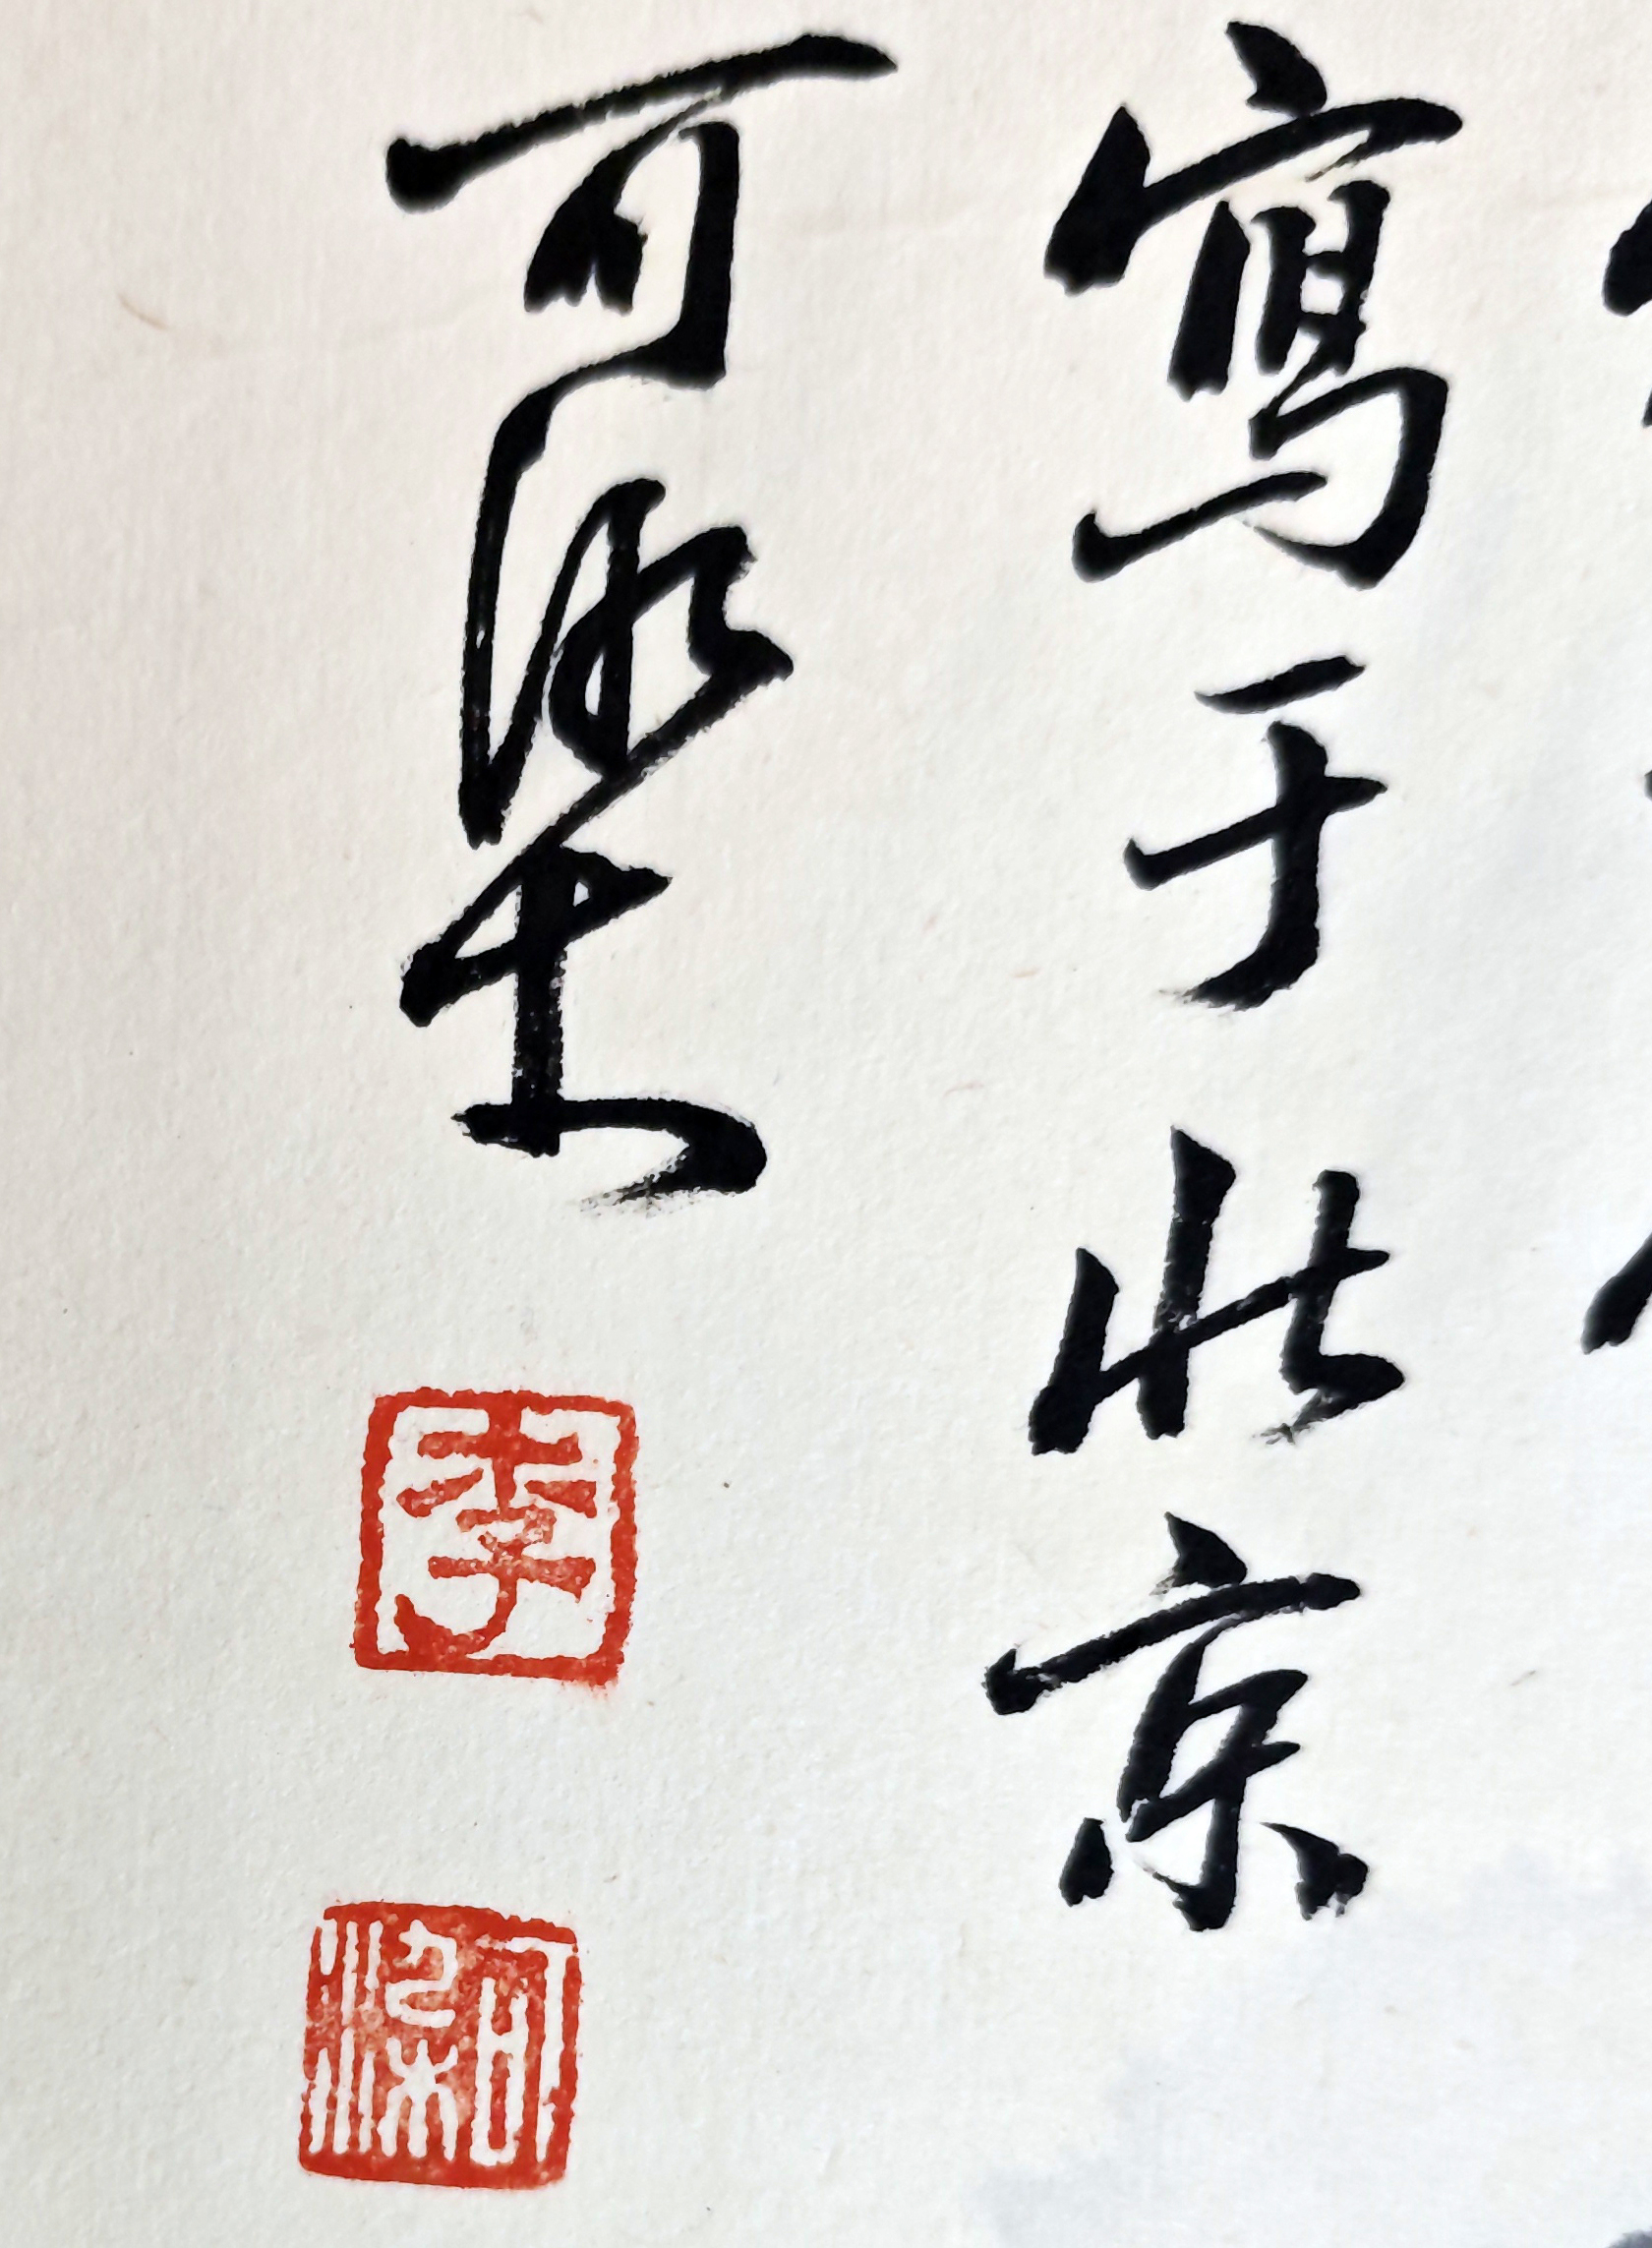 寫于北京
可染
李
可染